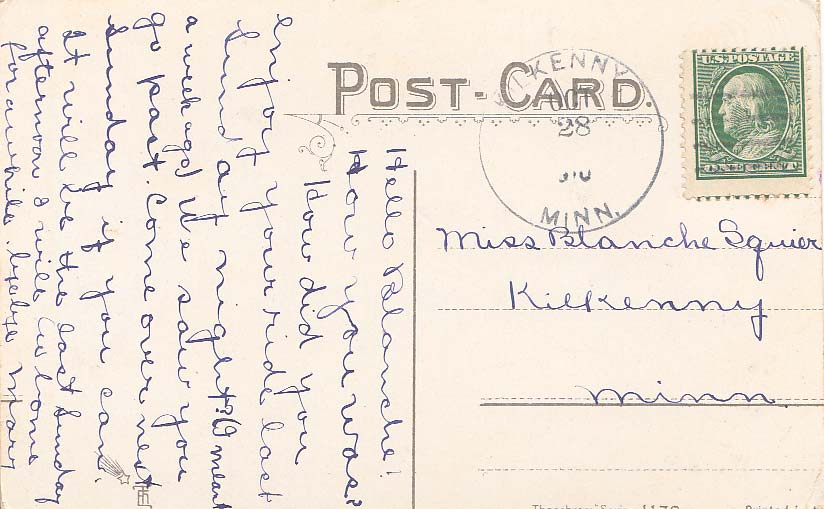 POST-CARD.
KILKENNY
OCT
28
MINN.
U.S. POSTAGE
ONE CENT
Miss Blanche Squier
Kilkenny
Minn.
Hello Blanche!
How you was?
How did you
enjoy your ride last
Sunday night? (I meant
a week ago) We saw you
go past. Come over next
Sunday if you can.
It will be the last Sunday
afternoon I will be home
for awhile. Mary
1178
Printed in